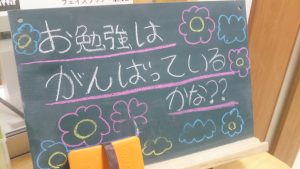 お勉強は
がんばっている
かな??